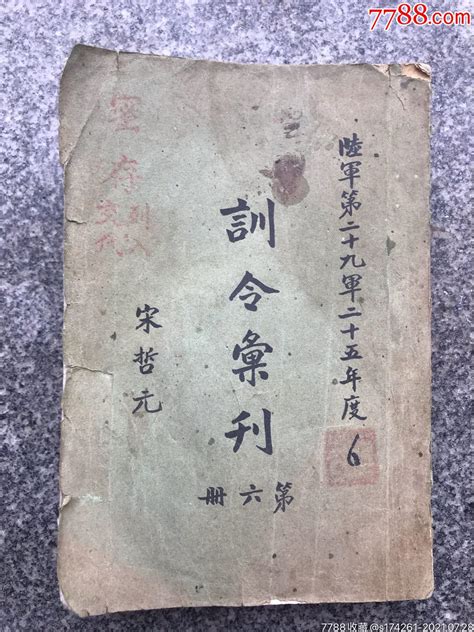 7788.com
陸軍第二十九軍二十五年度
6
訓令彙刊
第六册
宋哲元
室存
列入
交代
7788收藏@s174261-20210728